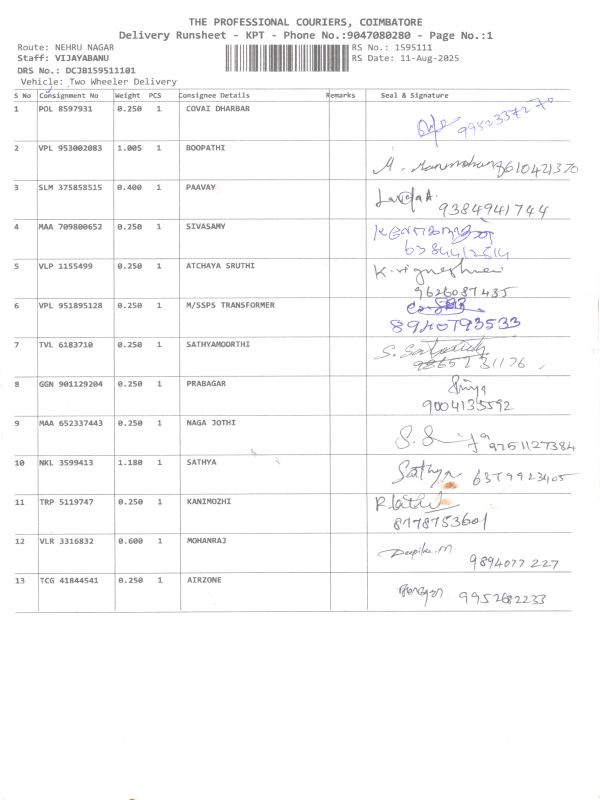 THE PROFESSIONAL COURIERS, COIMBATORE
Delivery Runsheet - KPT - Phone No.:9047080280 - Page No.:1
Route: NEHRU NAGAR RS No.: 1595111
Staff: VIJAYABANU RS Date: 11-Aug-2025
DRS No.: DCJB159511101
Vehicle: Two Wheeler Delivery
S No Consignment No Weight PCS Consignee Details Remarks Seal & Signature
1 POL 8597931 0.250 1 COVAI DHARBAR
2 VPL 953002083 1.005 1 BOOPATHI
M. Manimohan 8610421370
3 SLM 375858515 0.400 1 PAAVAY
9384941744
4 MAA 709800652 0.250 1 SIVASAMY
5 VLP 1155499 0.250 1 ATCHAYA SRUTHI
K. vigneshwari
9626087435
6 VPL 951895128 0.250 1 M/SSPS TRANSFORMER
8940793533
7 TVL 6183710 0.250 1 SATHYAMOORTHI
8 GGN 901129204 0.250 1 PRABAGAR
Priya
9004135592
9 MAA 652337443 0.250 1 NAGA JOTHI
9751127384
10 NKL 3599413 1.180 1 SATHYA
Sathya 6379923405
11 TRP 5119747 0.250 1 KANIMOZHI
8778753601
12 VLR 3316832 0.600 1 MOHANRAJ
Deepika.M
9894077227
13 TCG 41844541 0.250 1 AIRZONE
9952682233